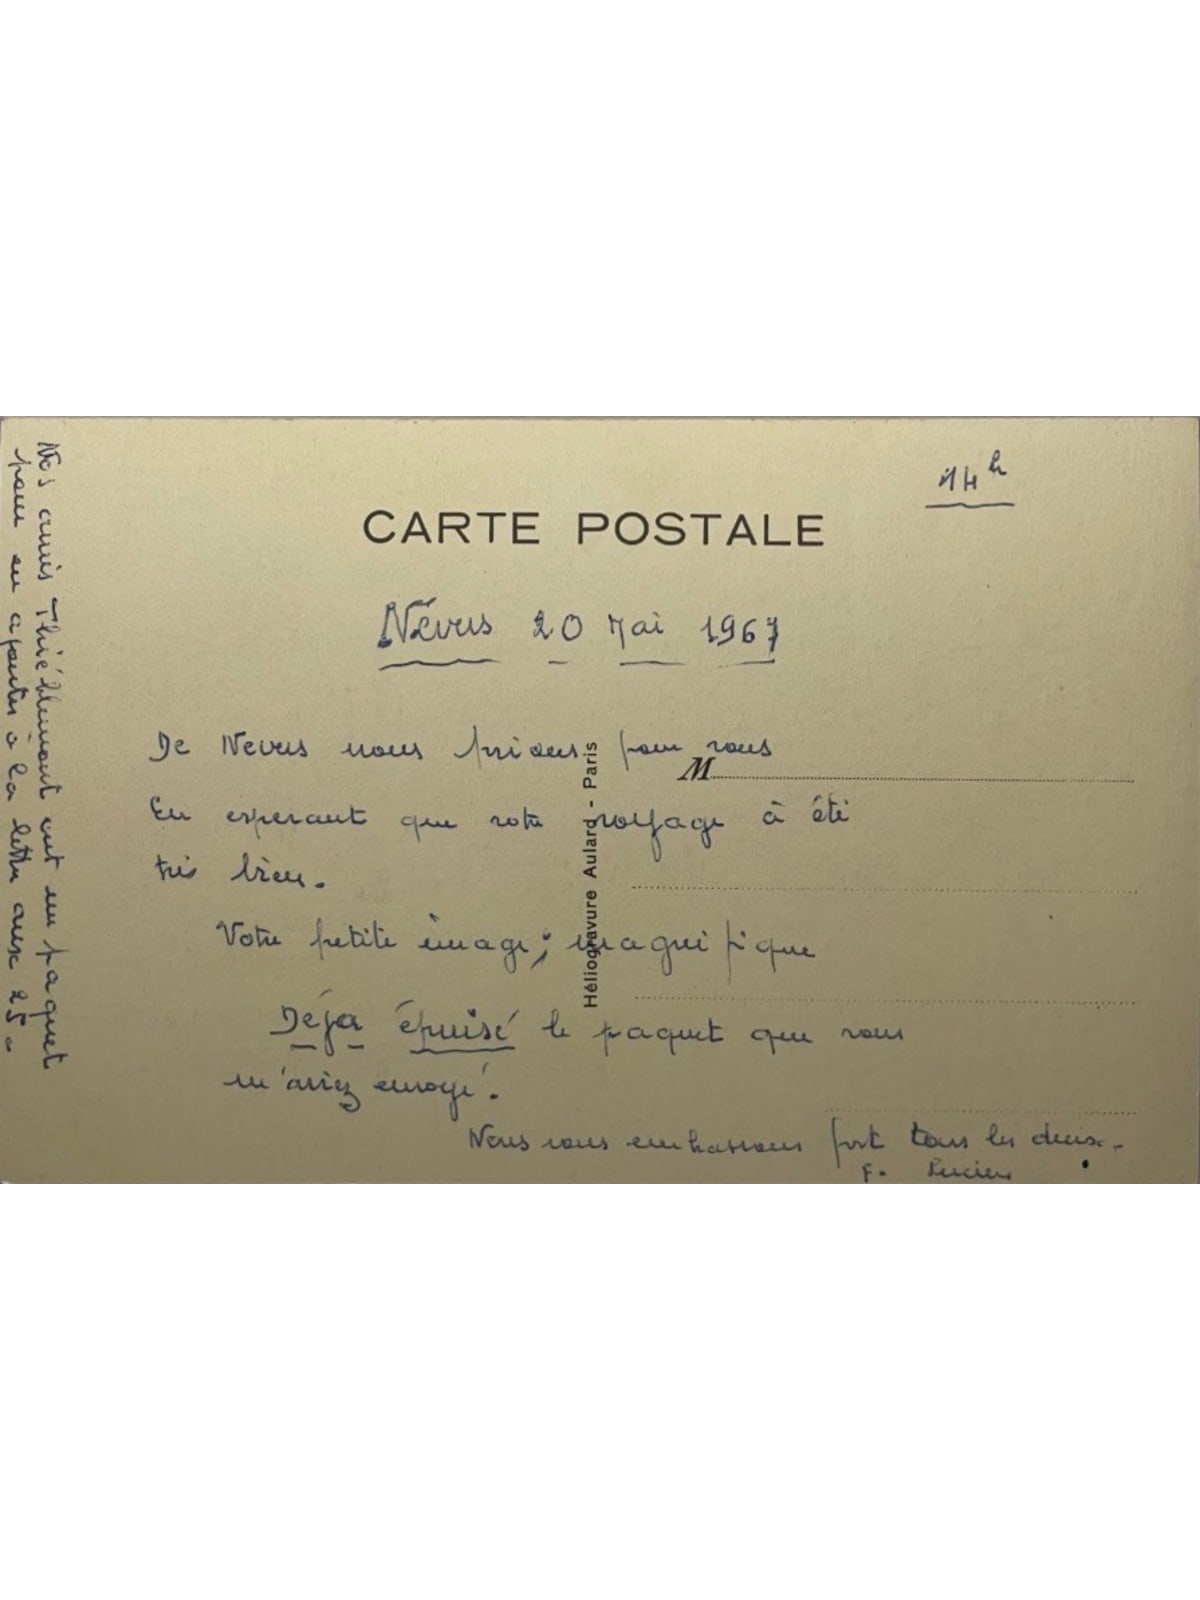 14h
CARTE POSTALE
Névers 20 Mai 1967
De Nevers nous prions pour vous
M
En esperant que votre voyage à été
très bien.
Votre petite image; magnifique
Déja épuisé le paquet que vous
m'aviez envoyé.
Nous vous embrassons fort tous les deux.
F. Lucien
Héliogravure Aulard - Paris
Nos amis Thiéblemont ont un paquet
pour en ajouter à la lettre aux 25.